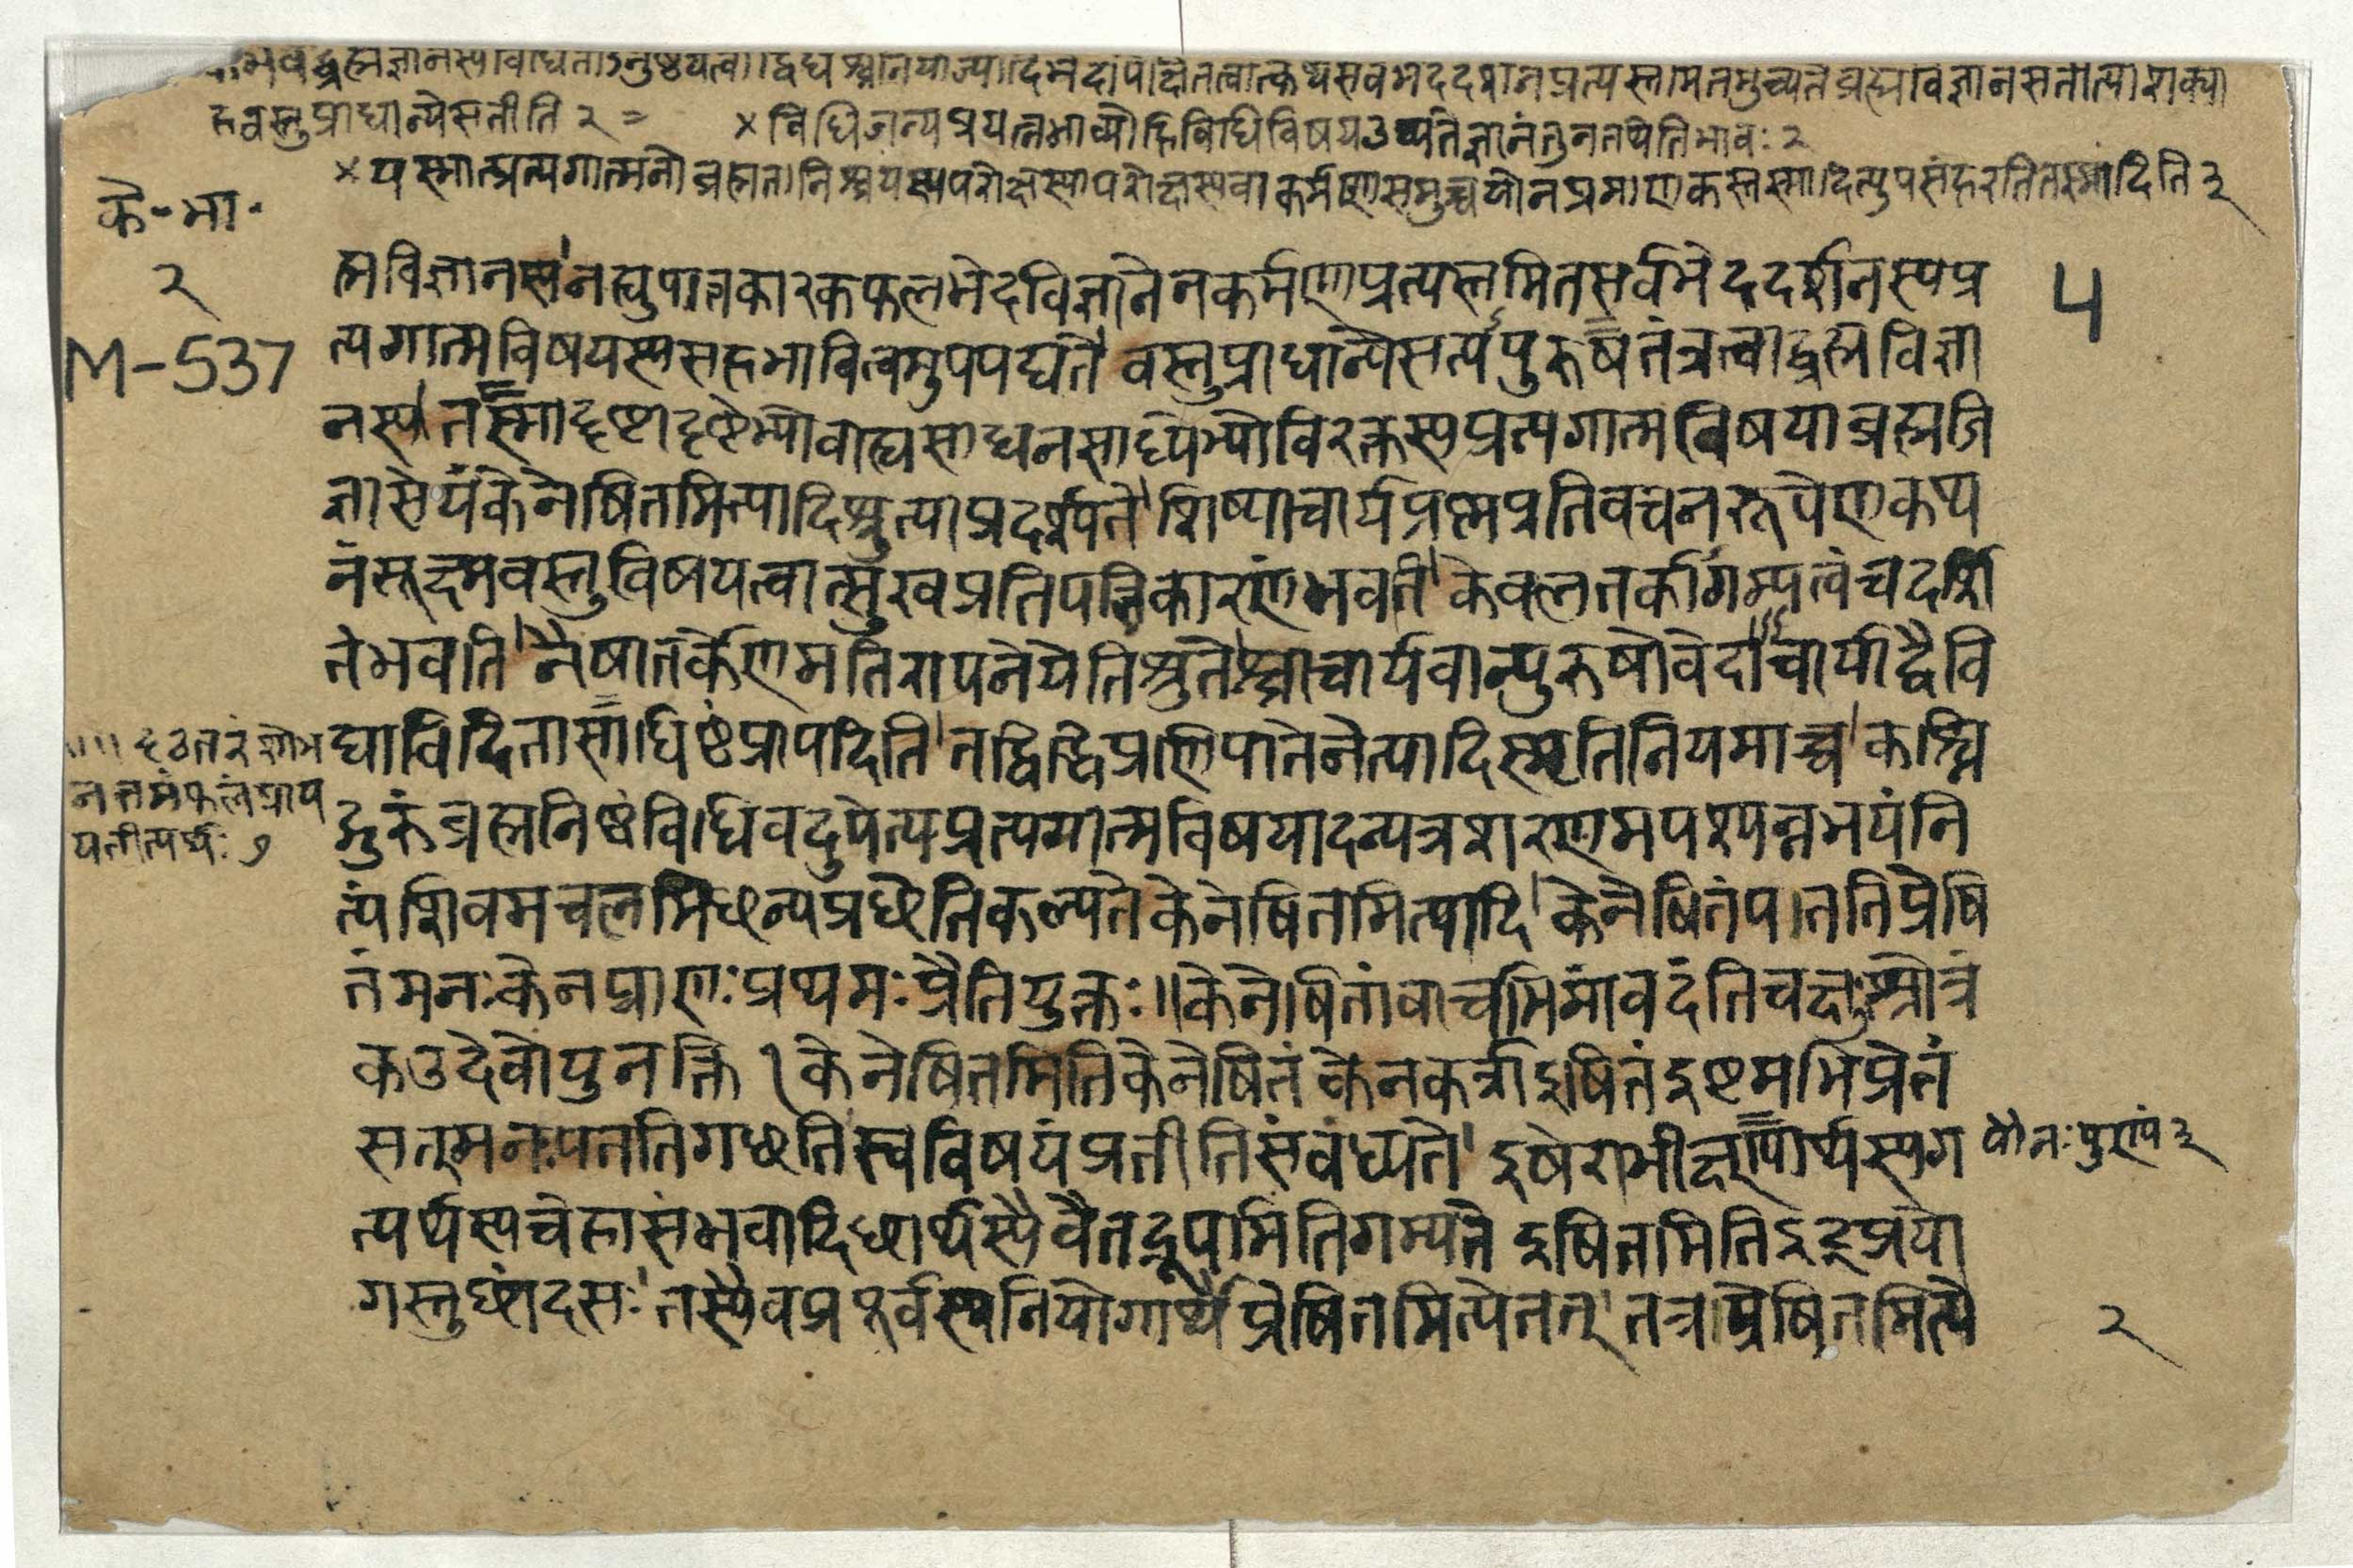 भवद्ब्रह्मज्ञानस्य विधितोऽनुष्ठेयत्वा
हवस्तुप्राधान्येसतीति २ = × विधिजन्यप्रयत्नभाव्योहिविधिविषयउच्यतेज्ञानंतुनतथेतिभावः २
× यस्मात्प्रत्यगात्मनोब्रह्मतानिश्चयस्यपरोक्षस्यापरोक्षस्यवाकर्मणासमुच्चयोनप्रमाणकस्तस्मादित्युपसंहरतितस्मादिति ३
के॰भा॰
२
M-537
त्मविज्ञानस्य नह्युपात्तकारकफलभेदविज्ञानेनकर्मणाप्रत्यस्तमितसर्वभेददर्शनस्यप्र
५
त्यगात्मविषयस्यसहभावित्वमुपपद्यते वस्तुप्राधान्येसत्यपुरुषतंत्रत्वाद्ब्रह्मविज्ञा
नस्य तस्मादृष्टादृष्टेभ्योबाह्यसाधनसाध्येभ्योविरक्तस्यप्रत्यगात्मविषयाब्रह्मजि
ज्ञासेयंकेनेषितमित्यादिश्रुत्याप्रदर्श्यते शिष्याचार्यप्रश्नप्रतिवचनरूपेणकथ
नंसूक्ष्मवस्तुविषयत्वात्सुखप्रतिपत्तिकारणंभवति केवलतर्कागम्यत्वंचदर्शि
तंभवति नैषातर्केणमतिरापनेयेतिश्रुतेश्चाचार्यवान्पुरुषोवेदाचार्याद्धैवि
द्याविदितासाधिष्ठंप्रापदिति तद्विद्धिप्रणिपातेनेत्यादिस्मृतिनियमाच्च कश्चि
द्गुरुंब्रह्मनिष्ठंविधिवदुपेत्यप्रत्यगात्मविषयादन्यत्रशरणमपश्यन्नभयंनि
त्यंशिवमचलमिछन्पप्रछेतिकल्प्यतेकेनेषितमित्यादि केनेषितंपततिप्रेषि
तंमनःकेनप्राणःप्रथमःप्रैतियुक्तः॥केनेषितांवाचमिमांवदंतिचक्षुःश्रोत्रं
कउदेवोयुनक्ति १ केनेषितमितिकेनेषितंकेनकर्त्राइषितंइष्टमभिप्रेतं
सत्मनःपततिगछतिस्वविषयंप्रतीतिसंबंध्यते इषेराभीक्ष्ण्यार्थस्यग
पौनःपुण्यं३
त्यर्थस्यचेहासंभवादिछार्थस्यैवैतद्रूपमितिगम्यते इषितमितिइट्प्रयो
गस्तुछांदसः तस्यैवप्रपूर्वस्यनियोगार्थेप्रेषितमित्येतत् तत्रप्रेषितमित्ये
२
नत्तमंफलंप्राप
यतीत्यर्थः १